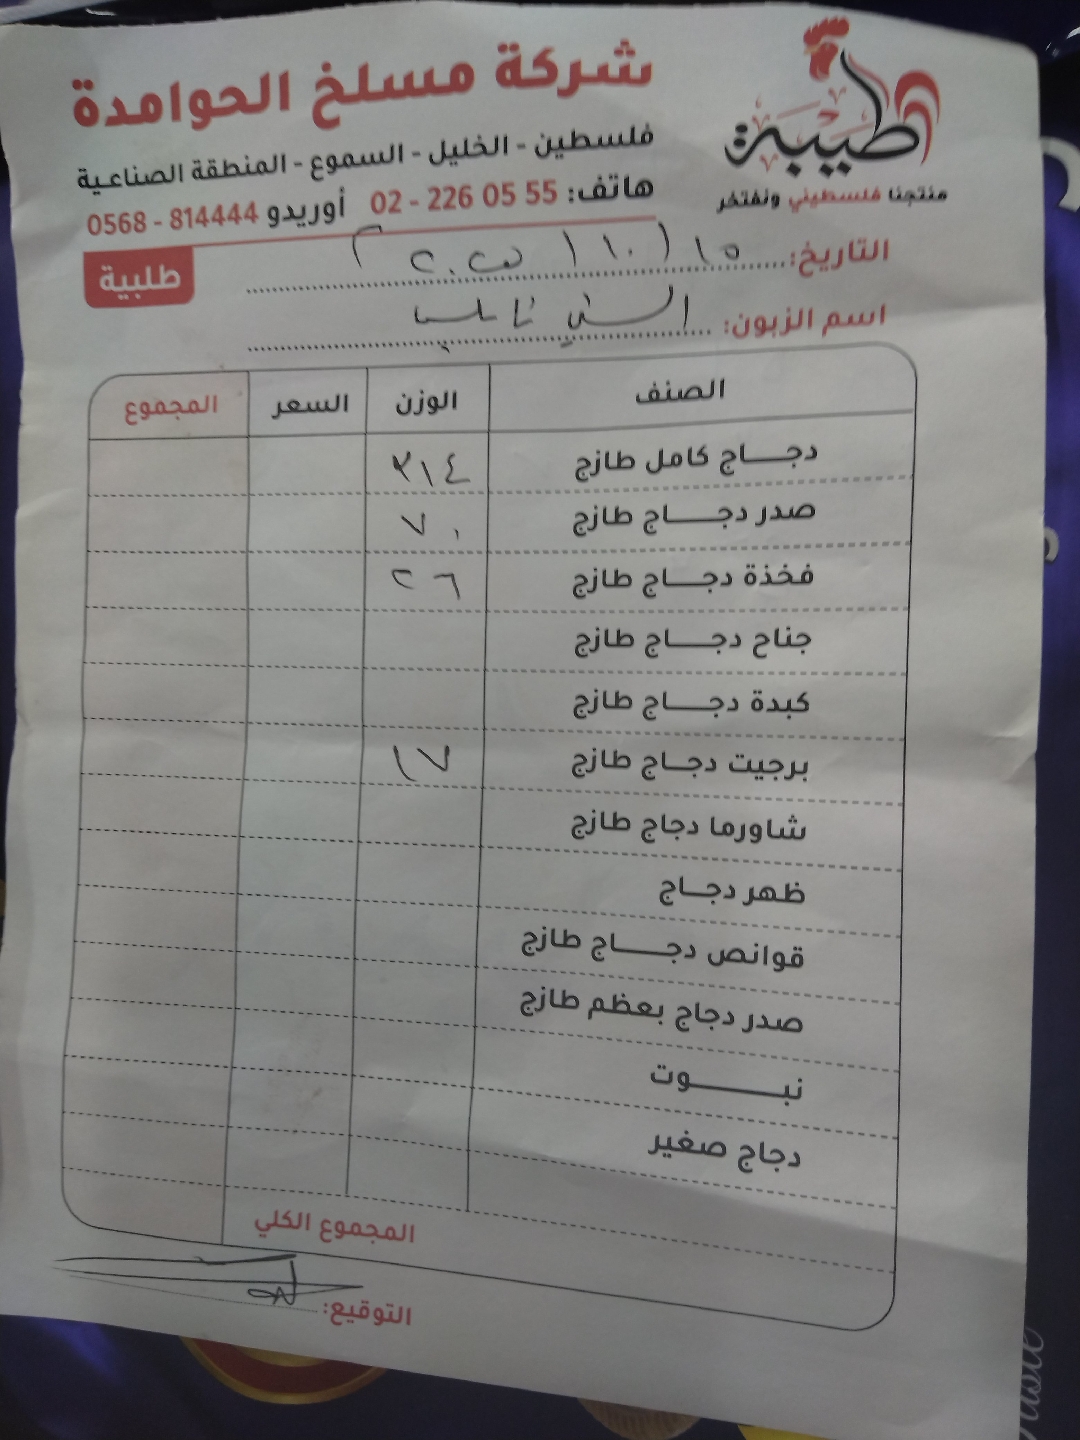 طيبة
منتجنا فلسطيني ونفتخر
شركة مسلخ الحوامدة
فلسطين - الخليل - السموع - المنطقة الصناعية
هاتف: 02 - 226 05 55 أوريدو 0568 - 814444
طلبية
التاريخ: ١٥ / ١٠ /
اسم الزبون:
الصنف الوزن السعر المجموع
دجـــاج كامل طازج ٣١٤
صدر دجـــــاج طازج ٧٠
فخذة دجـــاج طازج ٢٦
جناح دجـــــاج طازج
كبدة دجـــــاج طازج
برجيت دجـاج طازج ١٧
شاورما دجاج طازج
ظهر دجـــاج
قوانص دجـــــاج طازج
صدر دجاج بعظم طازج
نبـــــــوت
دجاج صغير
المجموع الكلي
التوقيع: